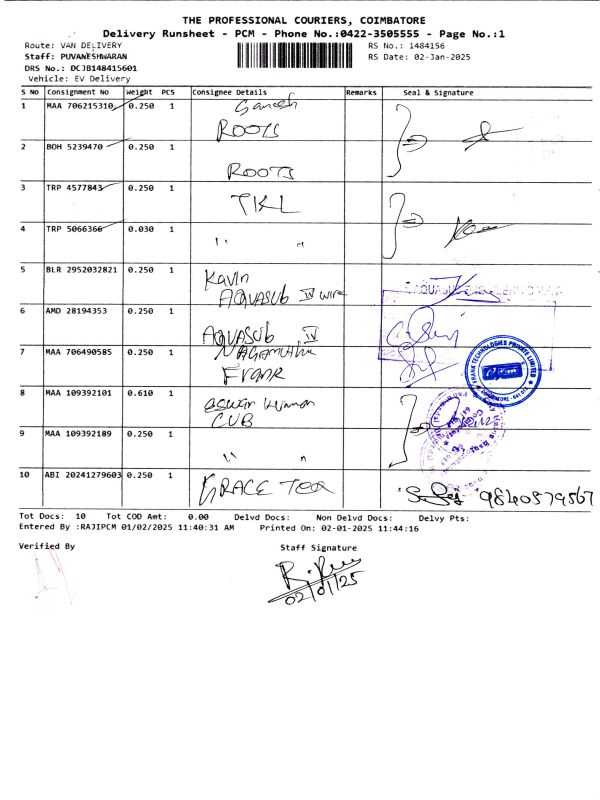 THE PROFESSIONAL COURIERS, COIMBATORE
Delivery Runsheet - PCM - Phone No.:0422-3505555 - Page No.:1
Route: VAN DELIVERY RS No.: 1484156
Staff: PUVANESHWARAN RS Date: 02-Jan-2025
DRS No.: DCJB148415601
Vehicle: EV Delivery
S No Consignment No Weight PCS Consignee Details Remarks Seal & Signature
1 MAA 706215310 0.250 1 Ganesh
ROOTS
2 BOH 5239470 0.250 1
ROOTS
3 TRP 4577843 0.250 1 TKL
4 TRP 5066366 0.030 1 " "
5 BLR 2952032821 0.250 1 Kavin
AQUASUB IV wire
6 AMD 28194353 0.250 1
AQUASUB IV
7 MAA 706490585 0.250 1
Frank
FRANK TECHNOLOGIES PRIVATE LIMITED
8 MAA 109392101 0.610 1 aswin kumar
CUB
9 MAA 109392189 0.250 1 " "
10 ABI 20241279603 0.250 1 GRACE Tex
Tot Docs: 10 Tot COD Amt: 0.00 Delvd Docs: Non Delvd Docs: Delvy Pts:
Entered By :RAJIPCM 01/02/2025 11:40:31 AM Printed On: 02-01-2025 11:44:16
Verified By Staff Signature
02/01/25